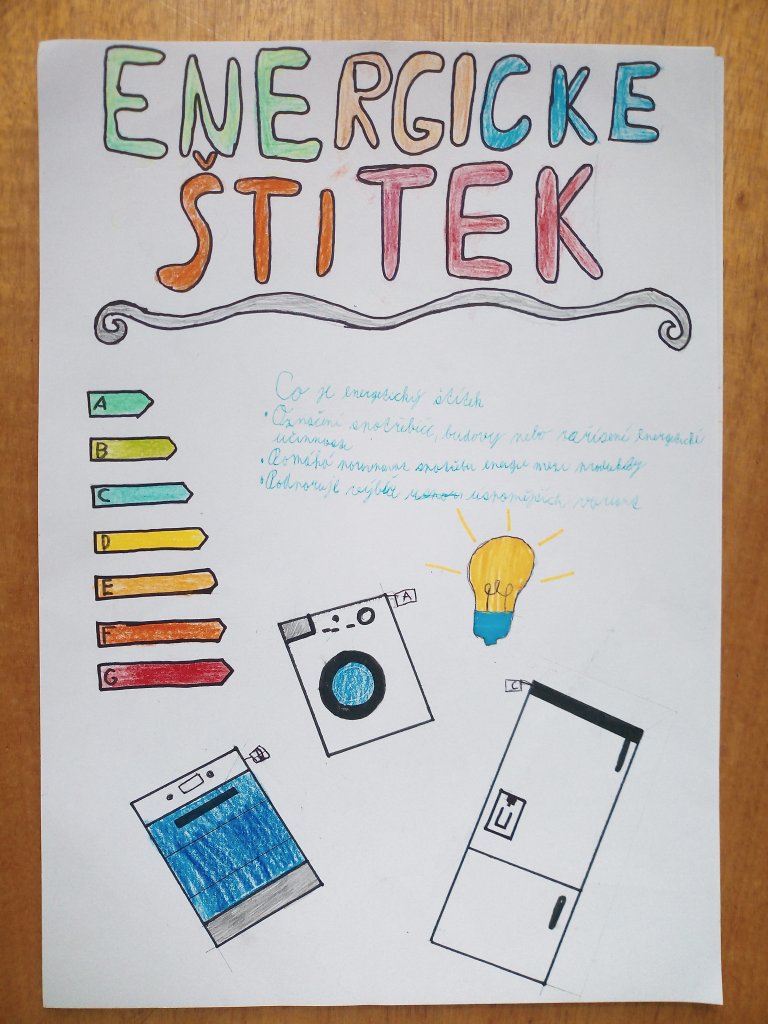 ENERGICKE
ŠTÍTEK
A
B
C
D
E
F
G
Co je energetický štítek
• Označení spotřebičů, budovy nebo zařízení energetické
účinnosti
• Pomáhá porovnávat spotřebu energie mezi produkty
• Podporuje výběr úspornějších variant
A
C